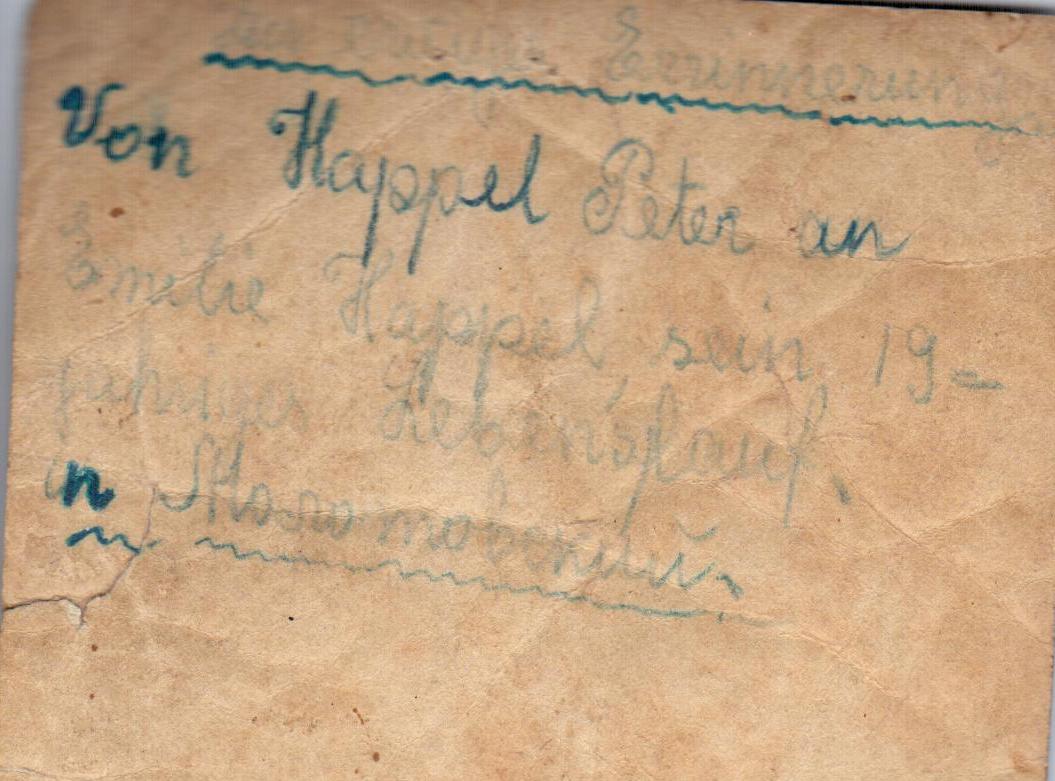 Zur ewigen Erinnerung
Von Happel Peter an
Emilie Happel sein 19=
jähriger Lebenslauf.
in